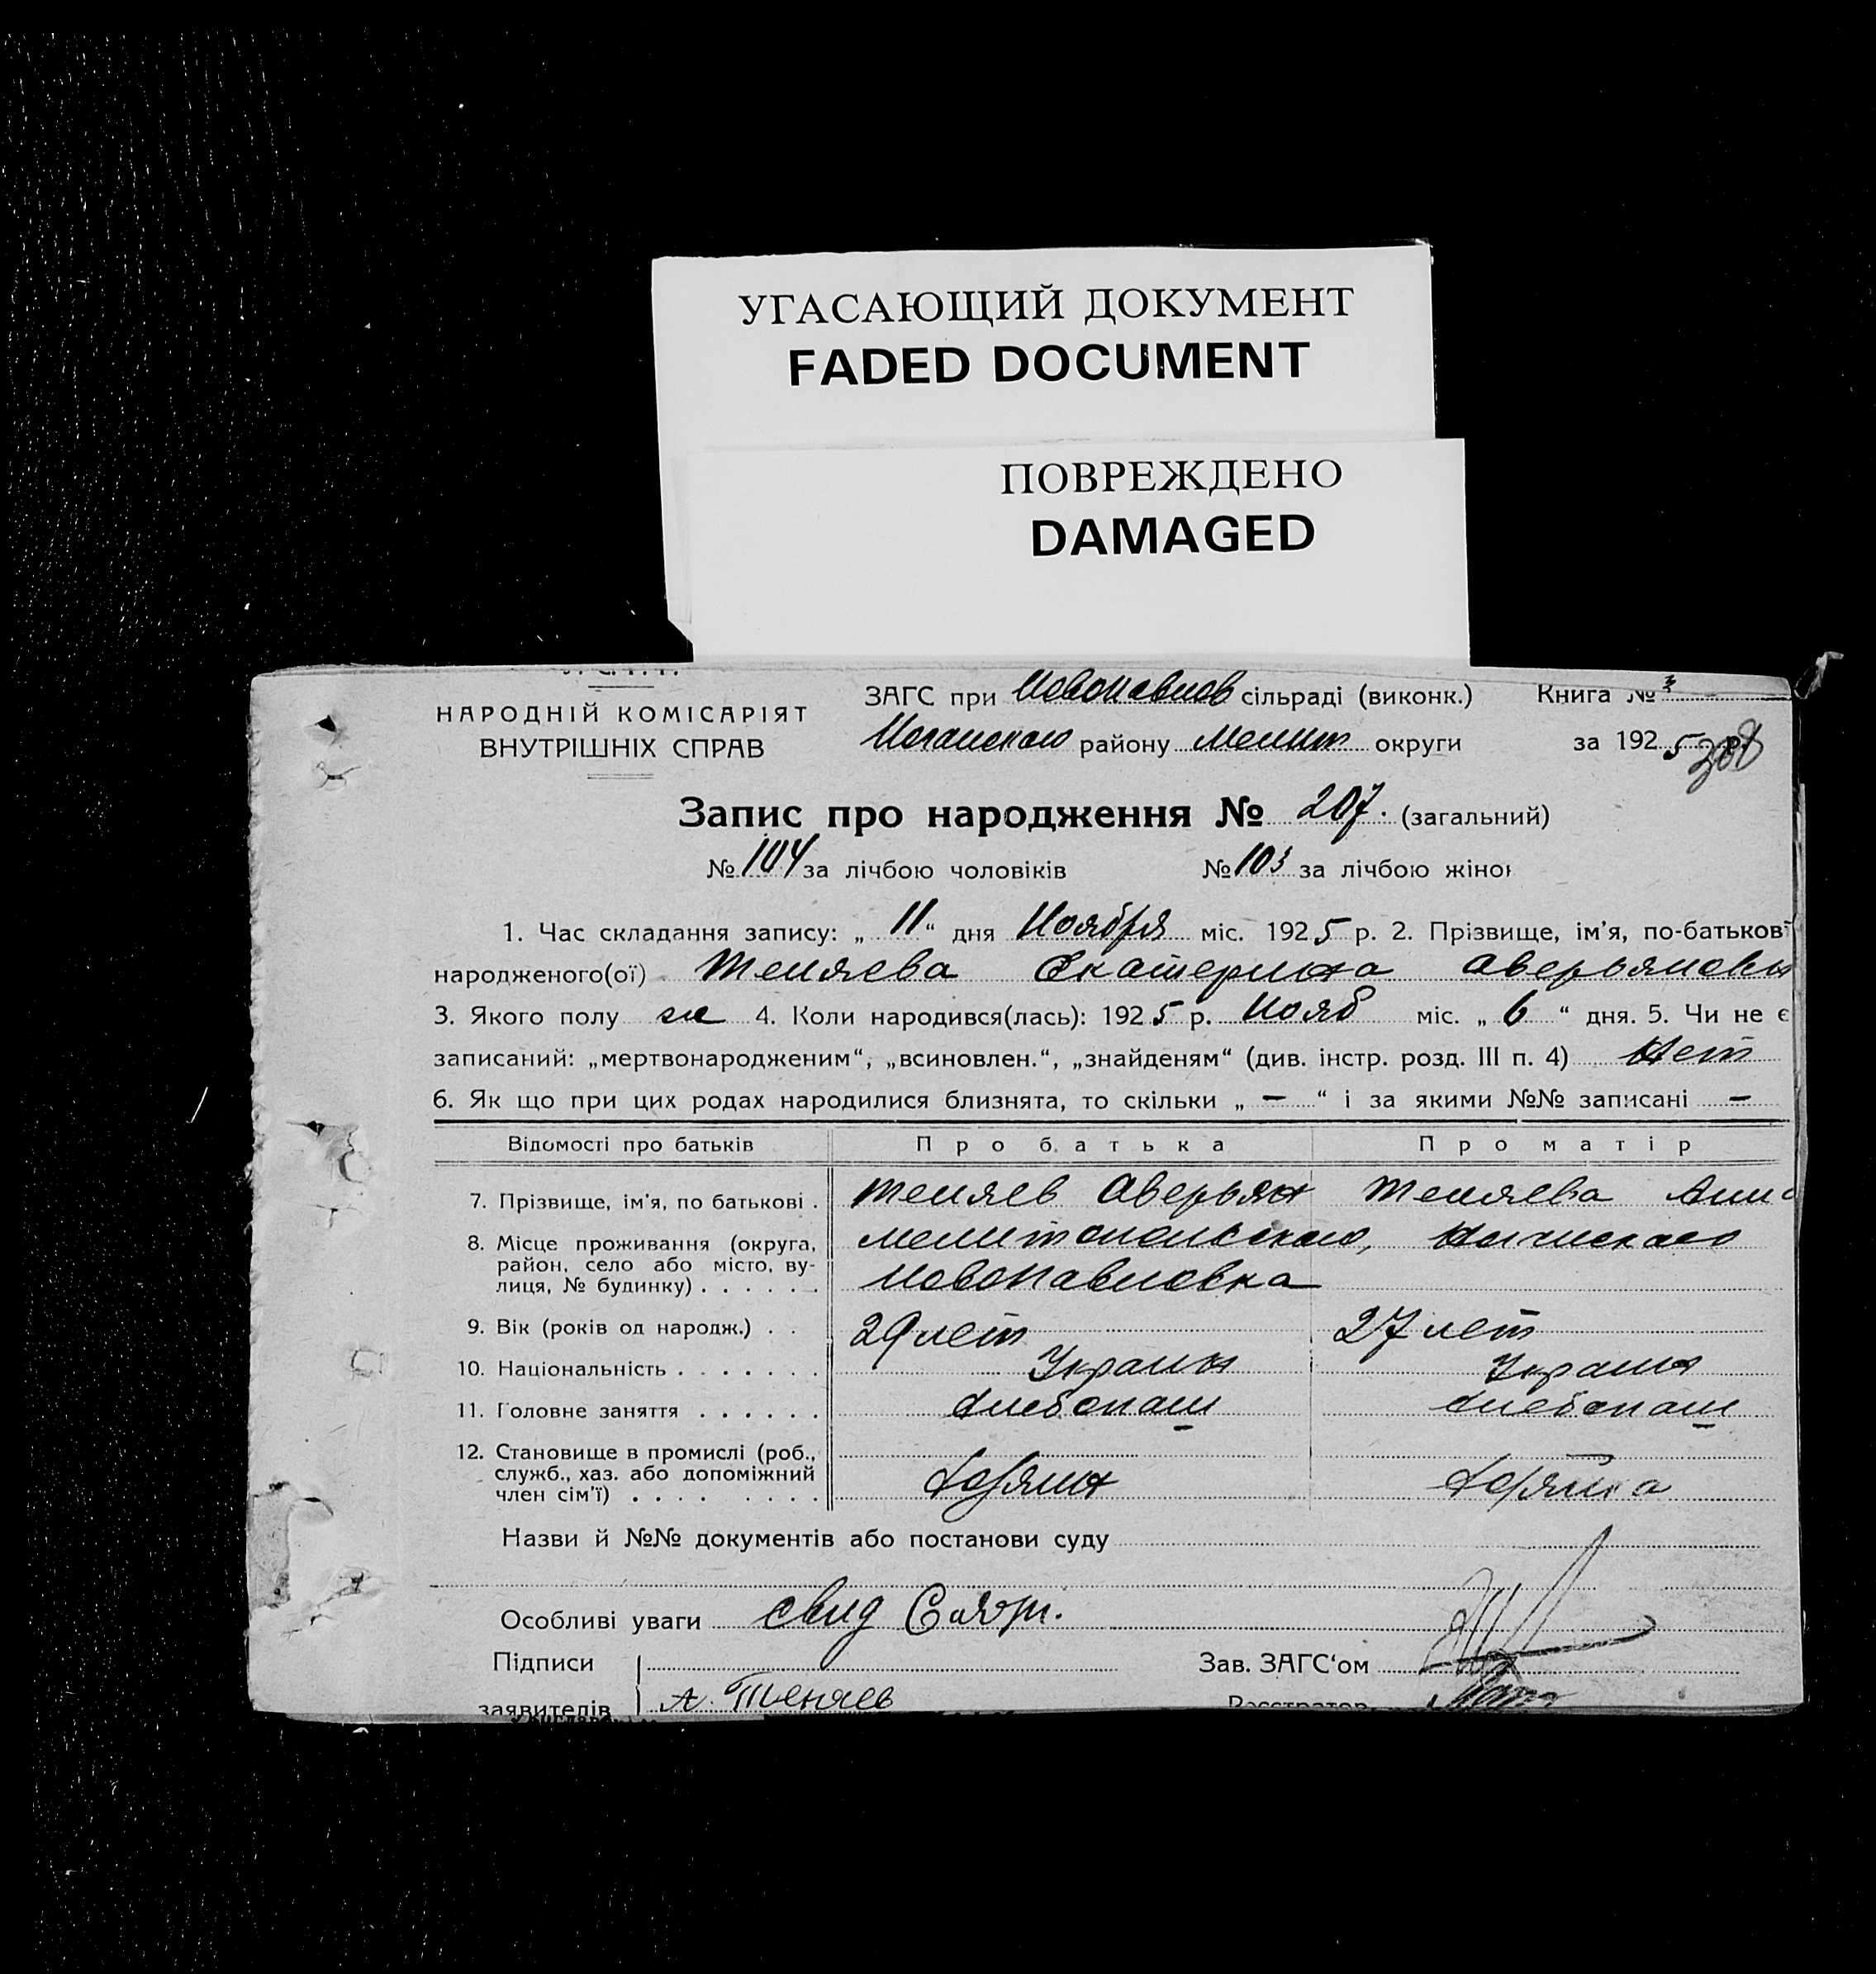 УГАСАЮЩИЙ ДОКУМЕНТ
FADED DOCUMENT
ПОВРЕЖДЕНО
DAMAGED
НАРОДНІЙ КОМІСАРІЯТ
ВНУТРІШНІХ СПРАВ
ЗАГС при Новопавлов сільраді (виконк.) Книга № 3
району Мелит округи за 1925 р.
Запис про народження № 207. (загальний)
№ 104 за лічбою чоловіків № 103 за лічбою жінок
1. Час складання запису: „ 11 “ дня Ноября міс. 1925 р. 2. Прізвище, ім’я, по-батькові
народженого(ої) Теняева Екатерина Аверьяновн
3. Якого полу же 4. Коли народився(лась): 1925 р. Нояб міс. „ 6 “ дня. 5. Чи не є
записаний: „мертвонародженим“, „всиновлен.“, „знайденям“ (див. інстр. розд. III п. 4) Нет
6. Як що при цих родах народилися близнята, то скільки „ — “ і за якими №№ записані —
Відомості про батьків Про батька Про матір
7. Прізвище, ім’я, по батькові . Теняев Аверьян Теняева Анна
8. Місце проживання (округа, район, село або місто, вулиця, № будинку) . . . . . . Мелитопольского,
Новопавловка
9. Вік (років од народж.) . . 29 лет 27 лет
10. Національність . . . . . . . Украин Украин
11. Головне заняття . . . . . . Хлебопаш Хлебопаш
12. Становище в промислі (роб., служб., хаз. або допоміжний член сім’ї) . . . . . . . .
Назви й №№ документів або постанови суду
Особливі уваги свид
Підписи Зав. ЗАГС‘ом
заявителів А. Теняев Реєстратор